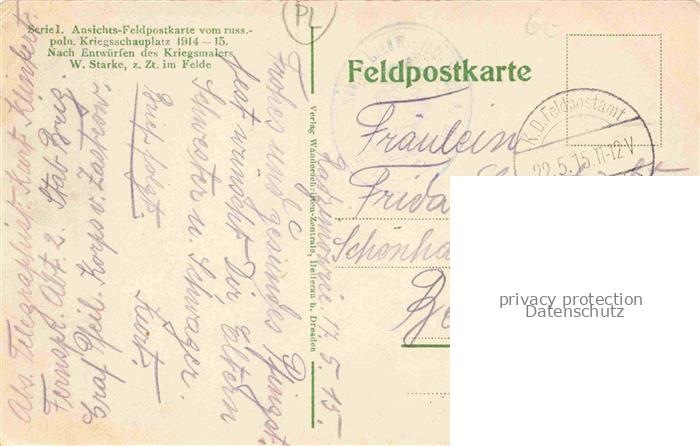 Serie I. Ansichts-Feldpostkarte vom russ.-
poln. Kriegsschauplatz 1914-15.
Nach Entwürfen des Kriegsmalers
W. Starke, z. Zt. im Felde
PL
6c
Feldpostkarte
K.D. Feldpostamt
22.5.15.11-12V
Fräulein
Frida
Schönha
Be
Verlag Wanderschriften-Zentrale, Hellerau b. Dresden
17.5.15.
Frohes und gesundes Pfingst-
fest wünscht Dir, Eltern
Schwester u. Schwager.
Brief folgt.
Kurt
Abs. Telegraphist Kurt
Fernspr. Abt. 2. Stab Brig.
Graf Pfeil. Korps v. Zastrow.
privacy protection
Datenschutz